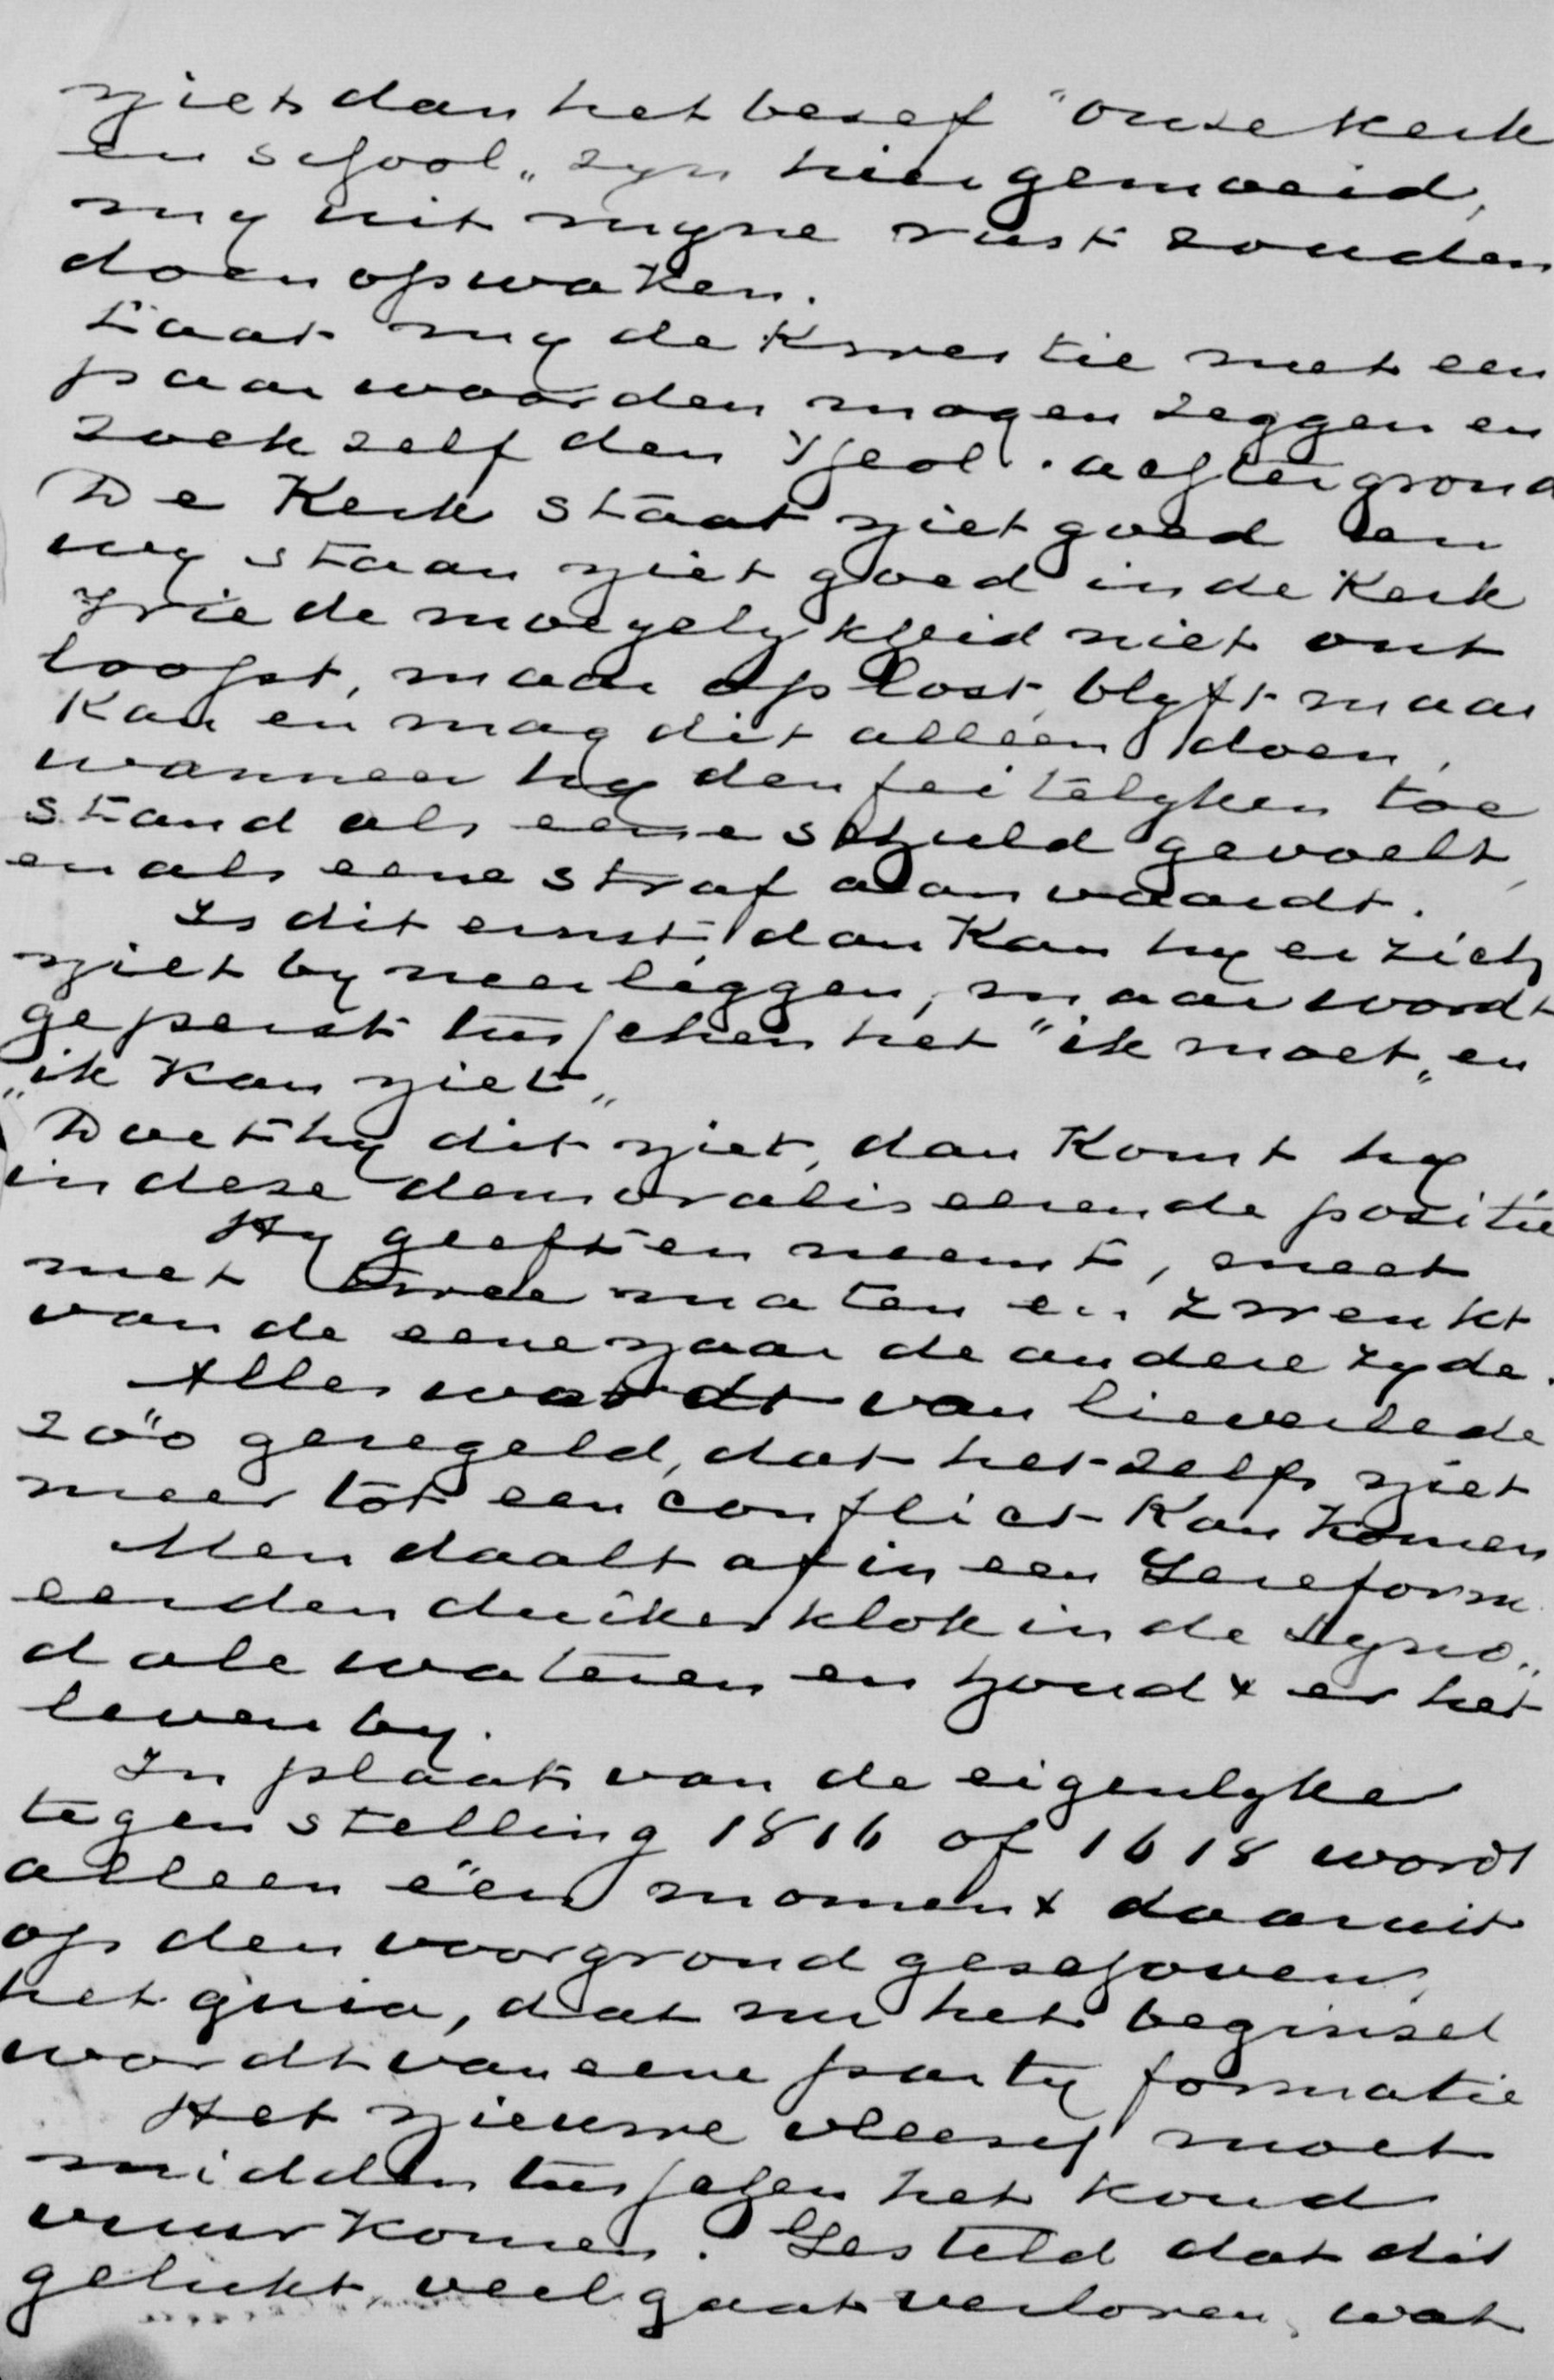 niet dan het besef "onze kerk
en school„ zyn hier gemoeid,
my uit myne rust zouden
doen opwaken.
Laat my de Kwestie met een
paar woorden mogen zeggen en
zoek zelf den Theol. achtergrond
De Kerk staat niet goed en
wy staan niet goed in de Kerk
Wie de moeyelykheid niet ont
loopt, maar oplost, blyft maar
Kan en mag dit alléén doen,
wanneer hy den feitelyken toe
stand als eene schuld gevoelt,
en als eene straf aanvaardt.
Is dit ernst, dan Kan hy er zich
niet by neerleggen, maar wordt
geperst tusschen het "ik moet„ en
„ik Kan niet„
Doet hy dit niet, dan Komt hy
in deze demoraliseerende positie
Hy geeft en neemt, meet
met twee maten en zwenkt
van de eene naar de andere zyde.
Alles wordt van lieverlede
zóó geregeld, dat het zelfs niet
meer tot een conflict Kan Komen
Men daalt af in een Gereform
eerden duikerklok in de Syno„
dale wateren en houdt er het
leven by.
In plaats van de eigenlyke
tegenstelling 1816 of 1618 wordt
alleen één moment daaruit
op den voorgrond geschoven,
het quia, dat nu het beginsel
wordt van eene party formatie
Het nieuwe vleesch moet
midden tusschen het koud
vuur Komen. Gesteld dat dit
gelukt, veel gaat verloren, wat